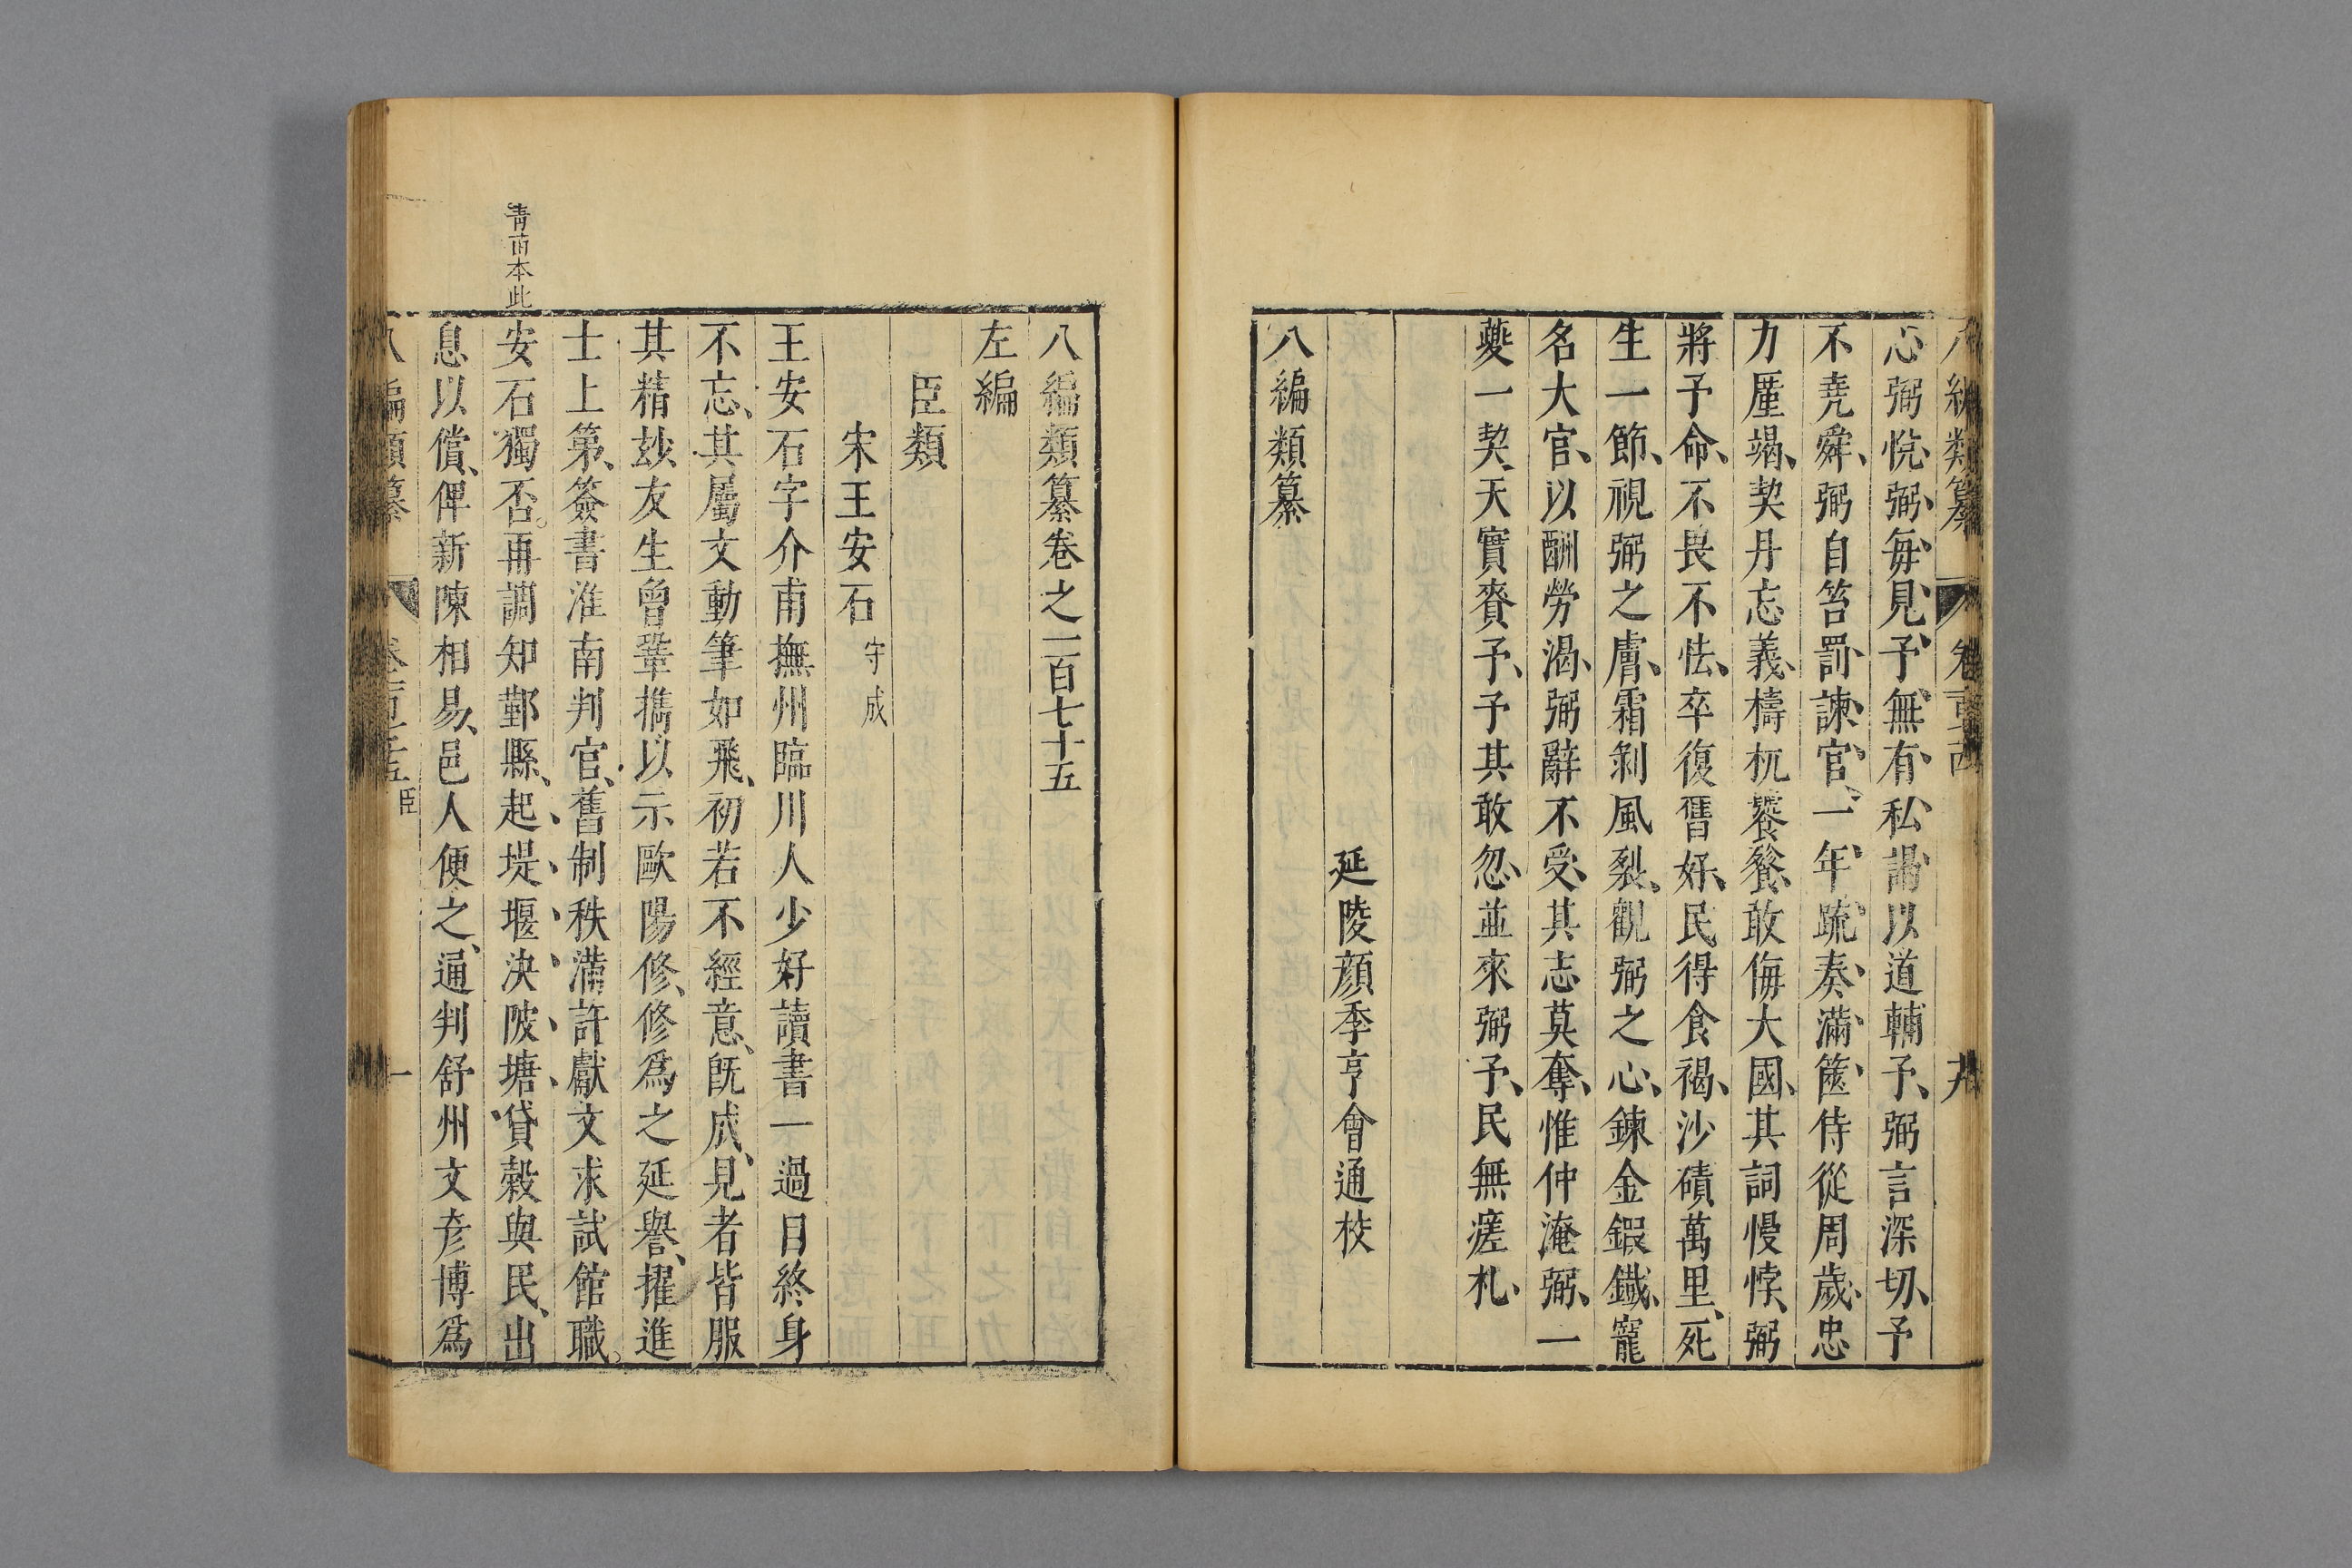 八編類纂 卷一百七十四 十九
心弼悅弼每見予無有私謁以道輔予弼言深切予
不堯舜弼自笞罰諫官一年疏奏滿篋侍從周歲忠
力厪竭契丹忘義檮杌饕餮敢侮大國其詞慢悖弼
將予命不畏不怯卒復舊好民得食褐沙磧萬里死
生一節視弼之膚霜剝風裂觀弼之心鍊金鍜鐵寵
名大官以酬勞渴弼辭不受其志莫奪惟仲淹弼一
夔一契天實賚予予其敢忽並來弼予民無瘥札
延陵顏季亨會通校
八編類纂
八編類纂卷之一百七十五
左編
臣類
宋王安石 守成
王安石字介甫撫州臨川人少好讀書一過目終身
不忘其屬文動筆如飛初若不經意旣成見者皆服
其精玅友生曾鞏攜以示歐陽修修爲之延譽擢進
士上第簽書淮南判官舊制秩滿許獻文求試館職
安石獨否再調知鄞縣起堤堰決陂塘貸穀與民出
息以償俾新陳相易邑人便之通判舒州文彥博爲
青苗本此
八編類纂 卷一百七十五 臣 一